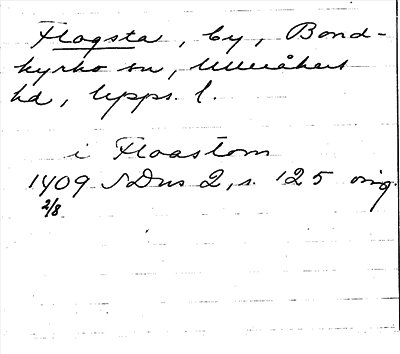 Flogsta, by, Bond-
kyrko sn, Ulleråkers
hd, Upps. l.
i Floastom
1409 SDns 2, s. 125 orig.
2/8